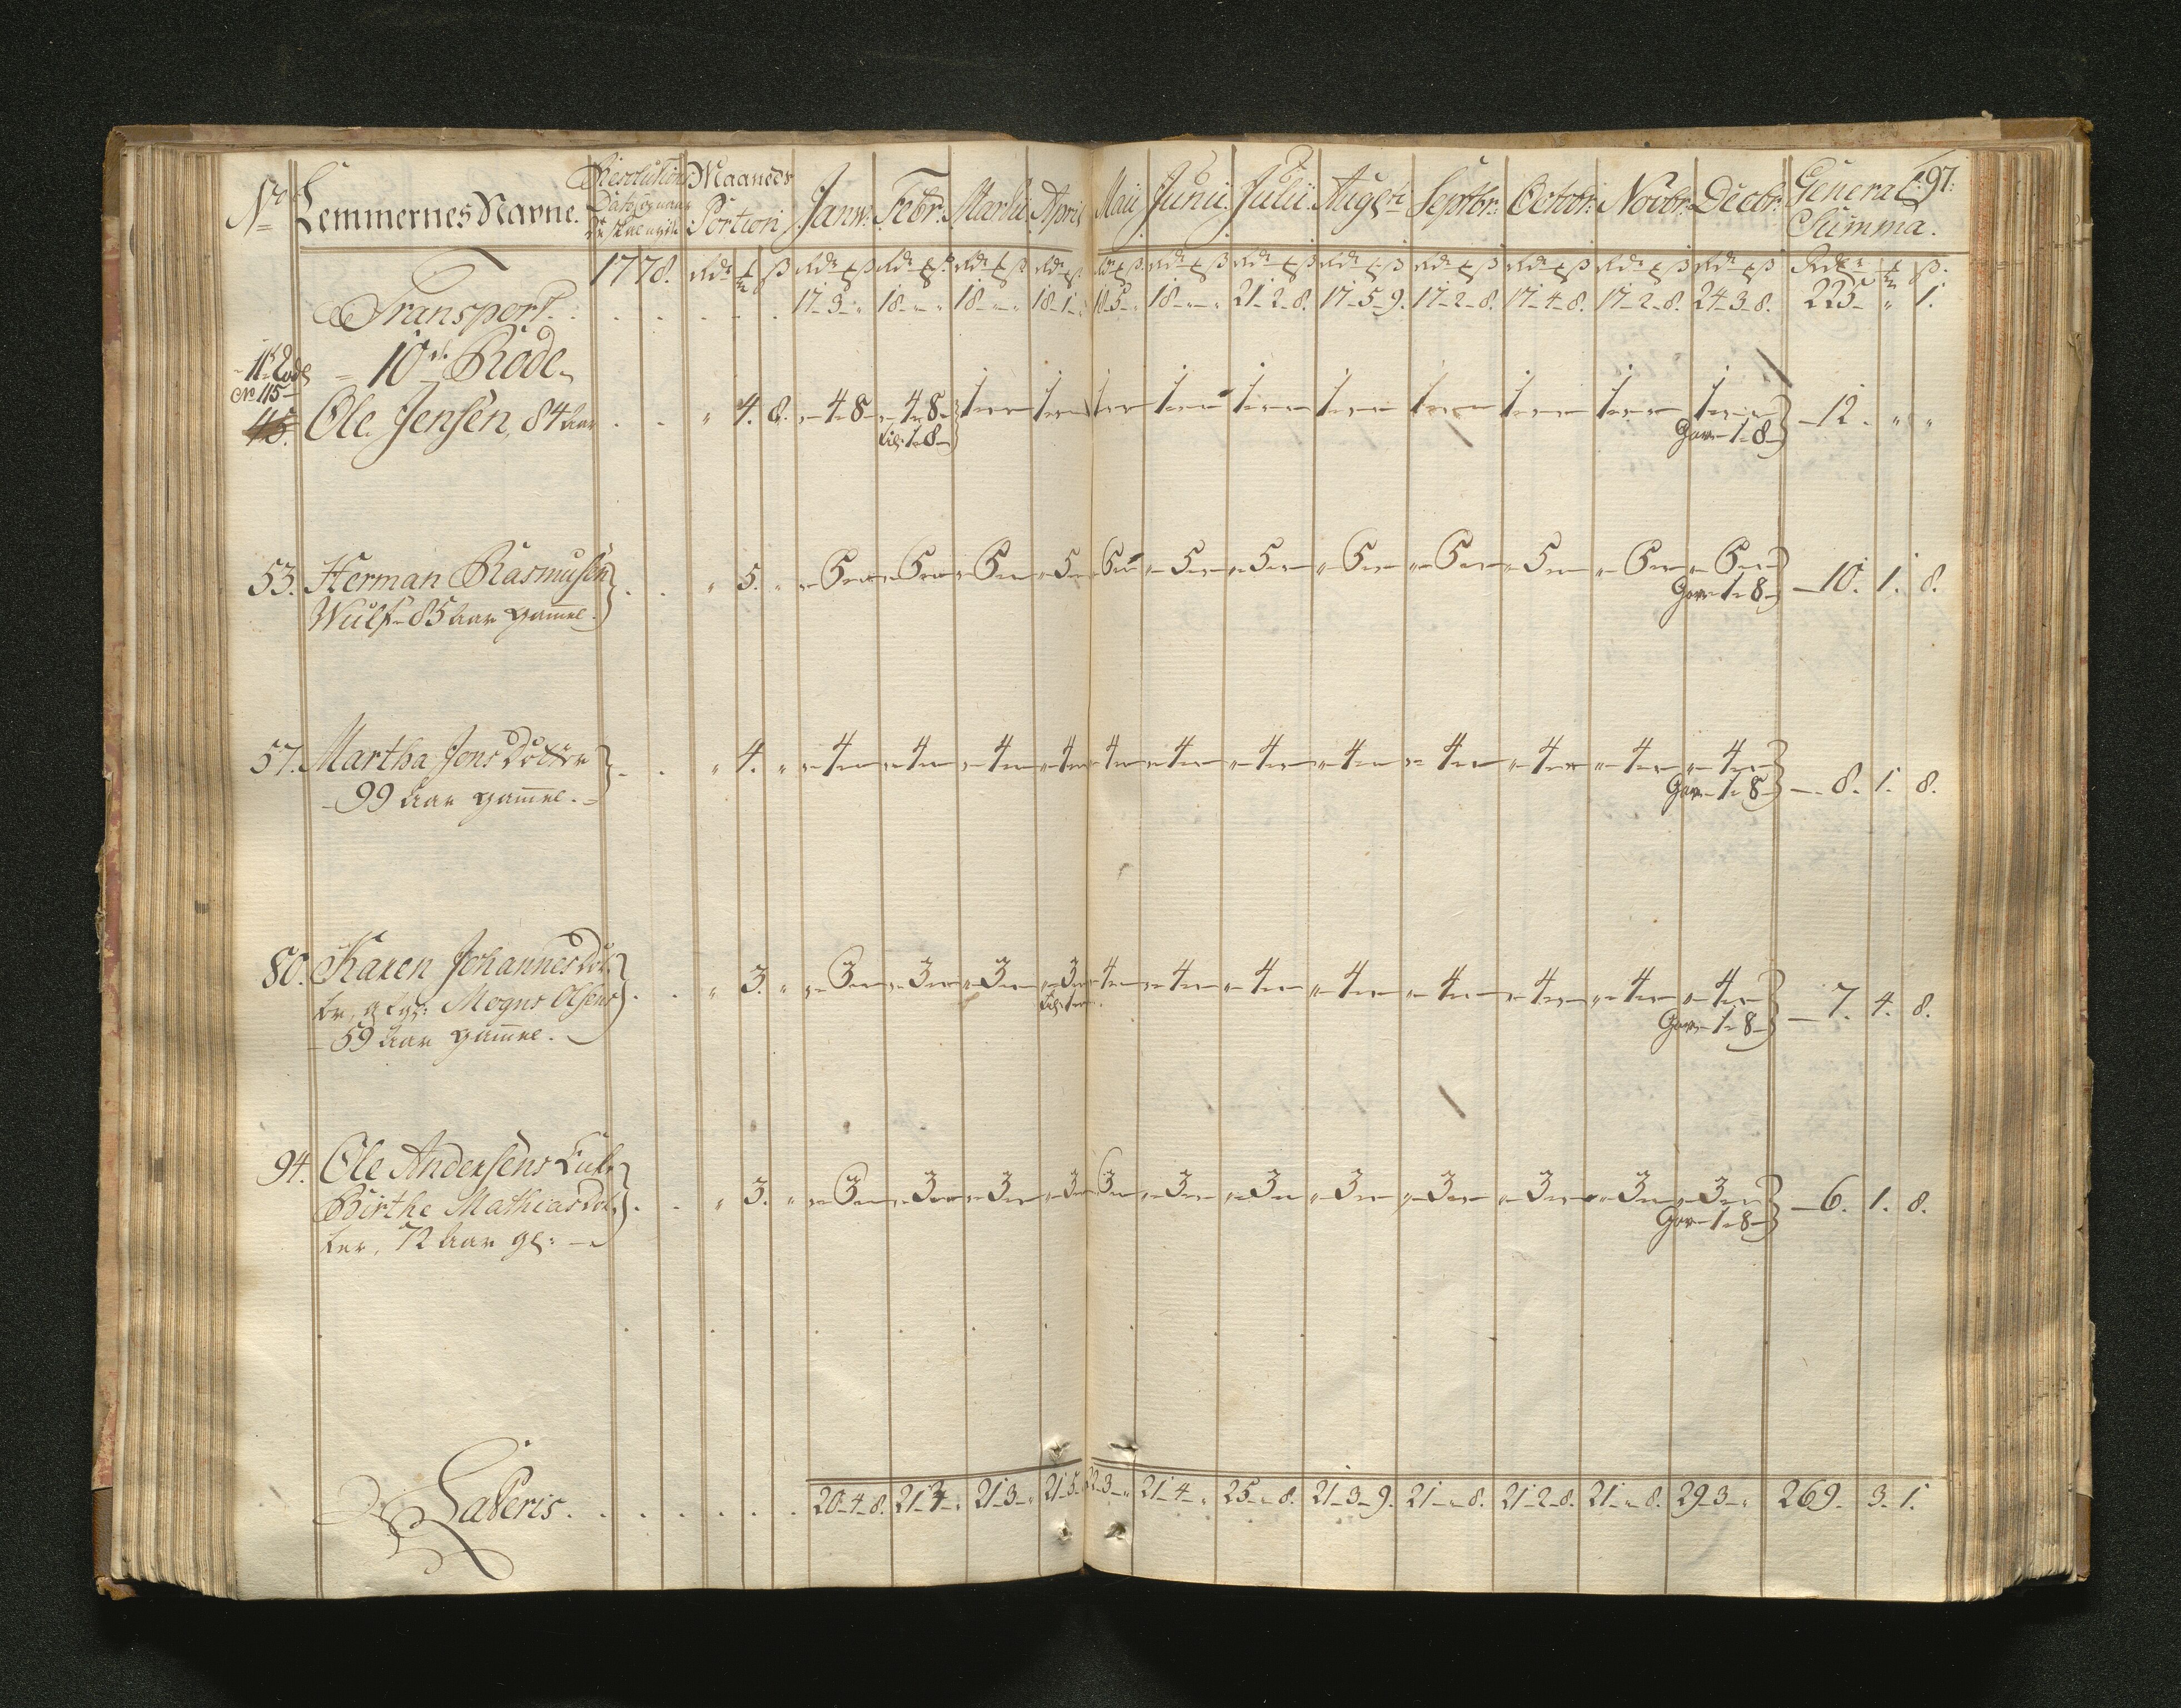 No Lemmernes Navne. Resolutions Maaneds Portion Janv: Febr: Martii April Maii Junii Julii Augsti Septbr: Octobr: Novbr: Decbr: General Summa. 97.
1778. Rdr ß Rdr ß Rdr ß Rdr ß Rdr ß Rdr ß Rdr ß Rdr ß Rdr ß Rdr ß Rdr ß Rdr ß Rdr ß Rdlr ß.
Transport. . . . . . 17-3-" 18-"-" 18-"-" 18-1-" 18-5-" 18-"-" 21-2-8. 17-5-9. 17-2-8. 17-4-8. 17-2-8. 24-3-8. 225- " 1.
10de Rode
11te Rode
No 115
45. Ole Jensen, 84 aar . . " 4. 8. "-4-8 "-4-8 1-"-" 1-"-" 1-"-" 1-"-" 1-"-" 1-"-" 1-"-" 1-"-" 1-"-" 1-"-" 12. " "
til: 1-8 Gav-1-8
53. Herman Rasmusen . . " 5. " "-5-" "-5-" "-5-" "-5-" "-5-" "-5-" "-5-" "-5-" "-5-" "-5-" "-5-" "-5-" 10. 1. 8.
Wulf-85 aar gammel. Gav-1-8
57. Martha Jens Dotter . . " 4. " "-4-" "-4-" "-4-" "-4-" "-4-" "-4-" "-4-" "-4-" "-4-" "-4-" "-4-" "-4-" 8. 1. 8.
99 aar gammel. Gav-1-8
80. Karen Johannes Dot . . " 3. " "-3-" "-3-" "-3-" "-3-" "-4-" "-4-" "-4-" "-4-" "-4-" "-4-" "-4-" "-4-" 7. 4. 8.
ter, Mogns Olsens til: 1-" Gav-1-8
59 aar gammel.
94. Ole Andersens Enke . . " 3. " "-3-" "-3-" "-3-" "-3-" "-3-" "-3-" "-3-" "-3-" "-3-" "-3-" "-3-" "-3-" 6. 1. 8.
Birthe Mathias Dot Gav-1-8
ter, 72 aar gl:
Lateris. . . . . . . 20-4-8. 21-4-" 21-3-" 21-5- 22-3-" 21-4-" 25-"-8. 21-3-9. 21-"-8. 21-2-8. 21-"-8. 29-3-" 269- 3-1.